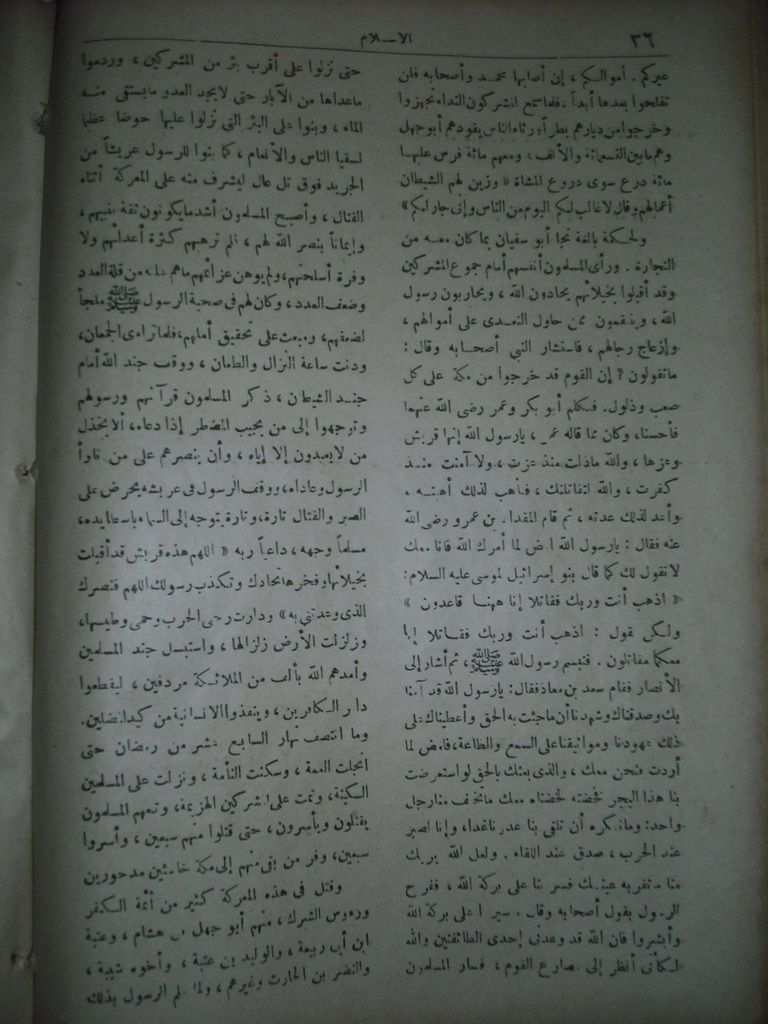 ٣٦
الاسلام
عيركم . أموالكم ، إن أصابها محمد وأصحابه فلن
تفلحوا بعدها أبداً ، فلما سمع المشركون النداء تجهزوا
وخرجوا من ديارهم بطراً ورئاء الناس يقودهم أبو جهل
وهم ما بين التسعمائة والألف ، ومعهم مائة فرس عليها
مائة درع سوى دروع المشاة « وزين لهم الشيطان
أعمالهم وقال لا غالب لكم اليوم من الناس وإنى جار لكم »
ولحكمة بالغة نجا أبو سفيان بما كان معه من
التجارة . ورأى المسلمون أنفسهم أمام جموع المشركين
وقد أقبلوا بخيلائهم يحادون الله ، ويحاربون رسول
الله ، وينقمون ممن حاول التعدى على أموالهم ،
وإزعاج رجالهم ، فاستشار النبي أصحابه وقال :
ماتقولون ? إن القوم قد خرجوا من مكة على كل
صعب وذلول . فتكلم أبو بكر وعمر رضى الله عنهما
فأحسنا ، وكان مما قاله عمر ، يارسول الله إنها قريش
وعزها ، والله ماذلت منذ عزت ، ولا آمنت منذ
كفرت ، والله لتقاتلنك ، فتأهب لذلك أهبته ،
وأعد لذلك عدته ، ثم قام المقداد بن عمرو رضى الله
عنه فقال : يارسول الله امض لما أمرك الله فانا معك
لانقول لك كما قال بنو إسرائيل لموسى عليه السلام :
« اذهب أنت وربك فقاتلا إنا ههنا قاعدون »
ولكن نقول : اذهب أنت وربك فقاتلا إنا
معكما مقاتلون . فتبسم رسول الله ﷺ ، ثم أشار إلى
الأنصار فقام سعد بن معاذ فقال : يارسول الله قد آمنا
بك وصدقناك وشهدنا أن ماجئت به الحق وأعطيناك على
ذلك عهودنا ومواثيقنا على السمع والطاعة ، فامض لما
أردت فنحن معك ، والذى بعثك بالحق لو استعرضت
بنا هذا البحر فخضته لخضناه معك ماتخلف منا رجل
واحد : وما نكره أن تلقى بنا عدونا غدا ، وإنا لصبر
عند الحرب ، صدق عند اللقاء . ولعل الله يريك
منا ماتقر به عينك فسر بنا على بركة الله ، ففرح
الرسول بقول أصحابه وقال . سيروا على بركة الله
وأبشروا فان الله قد وعدنى إحدى الطائفتين والله
لكأنى أنظر إلى مصارع القوم ، فسار المسلمون
حتى نزلوا على أقرب بئر من المشركين ، وردموا
ماعداها من الآبار حتى لايجد العدو مايستقى منه
الماء ، وبنوا على البئر التى نزلوا عليها حوضا عظيما
لسقيا الناس والأنعام ، كما بنوا للرسول عريشاً من
الجريد فوق تل عال ليشرف منه على المعركة أثناء
القتال ، وأصبح المسلمون أشد مايكونون ثقة بنبيهم ،
وإيماناً بنصر الله لهم ، لم ترهبهم كثرة أعدائهم ولا
وفرة أسلحتهم ، ولم يوهن عزائمهم ماهم عليه من قلة العدد
وضعف العدد ، وكان لهم فى صحبة الرسول ﷺ ملجأ
لضعفهم ، ومبعث على تحقيق أملهم ، فلما تراءى الجمعان ،
ودنت ساعة النزال والطعان ، ووقف جند الله أمام
جند الشيطان ، ذكر المسلمون قرآنهم ورسولهم
وتوجهوا إلى من يجيب المضطر إذا دعاه ، ألا يخذل
من لايعبدون إلا إياه ، وأن ينصرهم على من ناوأ
الرسول وعاداه ، ووقف الرسول فى عريشه يحرض على
الصبر والقتال تارة ، وتارة يتوجه إلى السماء باسطا يديه ،
مسلماً وجهه ، داعياً ربه « اللهم هذه قريش قد أقبلت
بخيلائها وفخرها تحادك وتكذب رسولك اللهم فنصرك
الذى وعدتنى به » ودارت رحى الحرب وحمى وطيسها ،
وزلزلت الأرض زلزالها ، واستبسل جند المسلمين
وأمدهم الله بألف من الملائكة مردفين ، ليقطعوا
دابر الكافرين ، وينقذوا الانسانية من كيد المضلين .
وما انتصف نهار السابع عشر من رمضان حتى
انجلت الغمة ، وسكنت النأمة ، ونزلت على المسلمين
السكينة ، وتمت على المشركين الهزيمة ، وتبعهم المسلمون
يقتلون ويأسرون ، حتى قتلوا منهم سبعين ، وأسروا
سبعين ، وفر من بقى منهم إلى مكة خائبين مدحورين
وقتل فى هذه المعركة كثير من أئمة الكفر
ورءوس الشرك ، منهم أبو جهل بن هشام ، وعتبة
ابن أبى ربيعة ، والوليد بن عتبة ، وأخوه شيبة ،
والنضر بن الحارث وغيرهم ، ولما علم الرسول بذلك